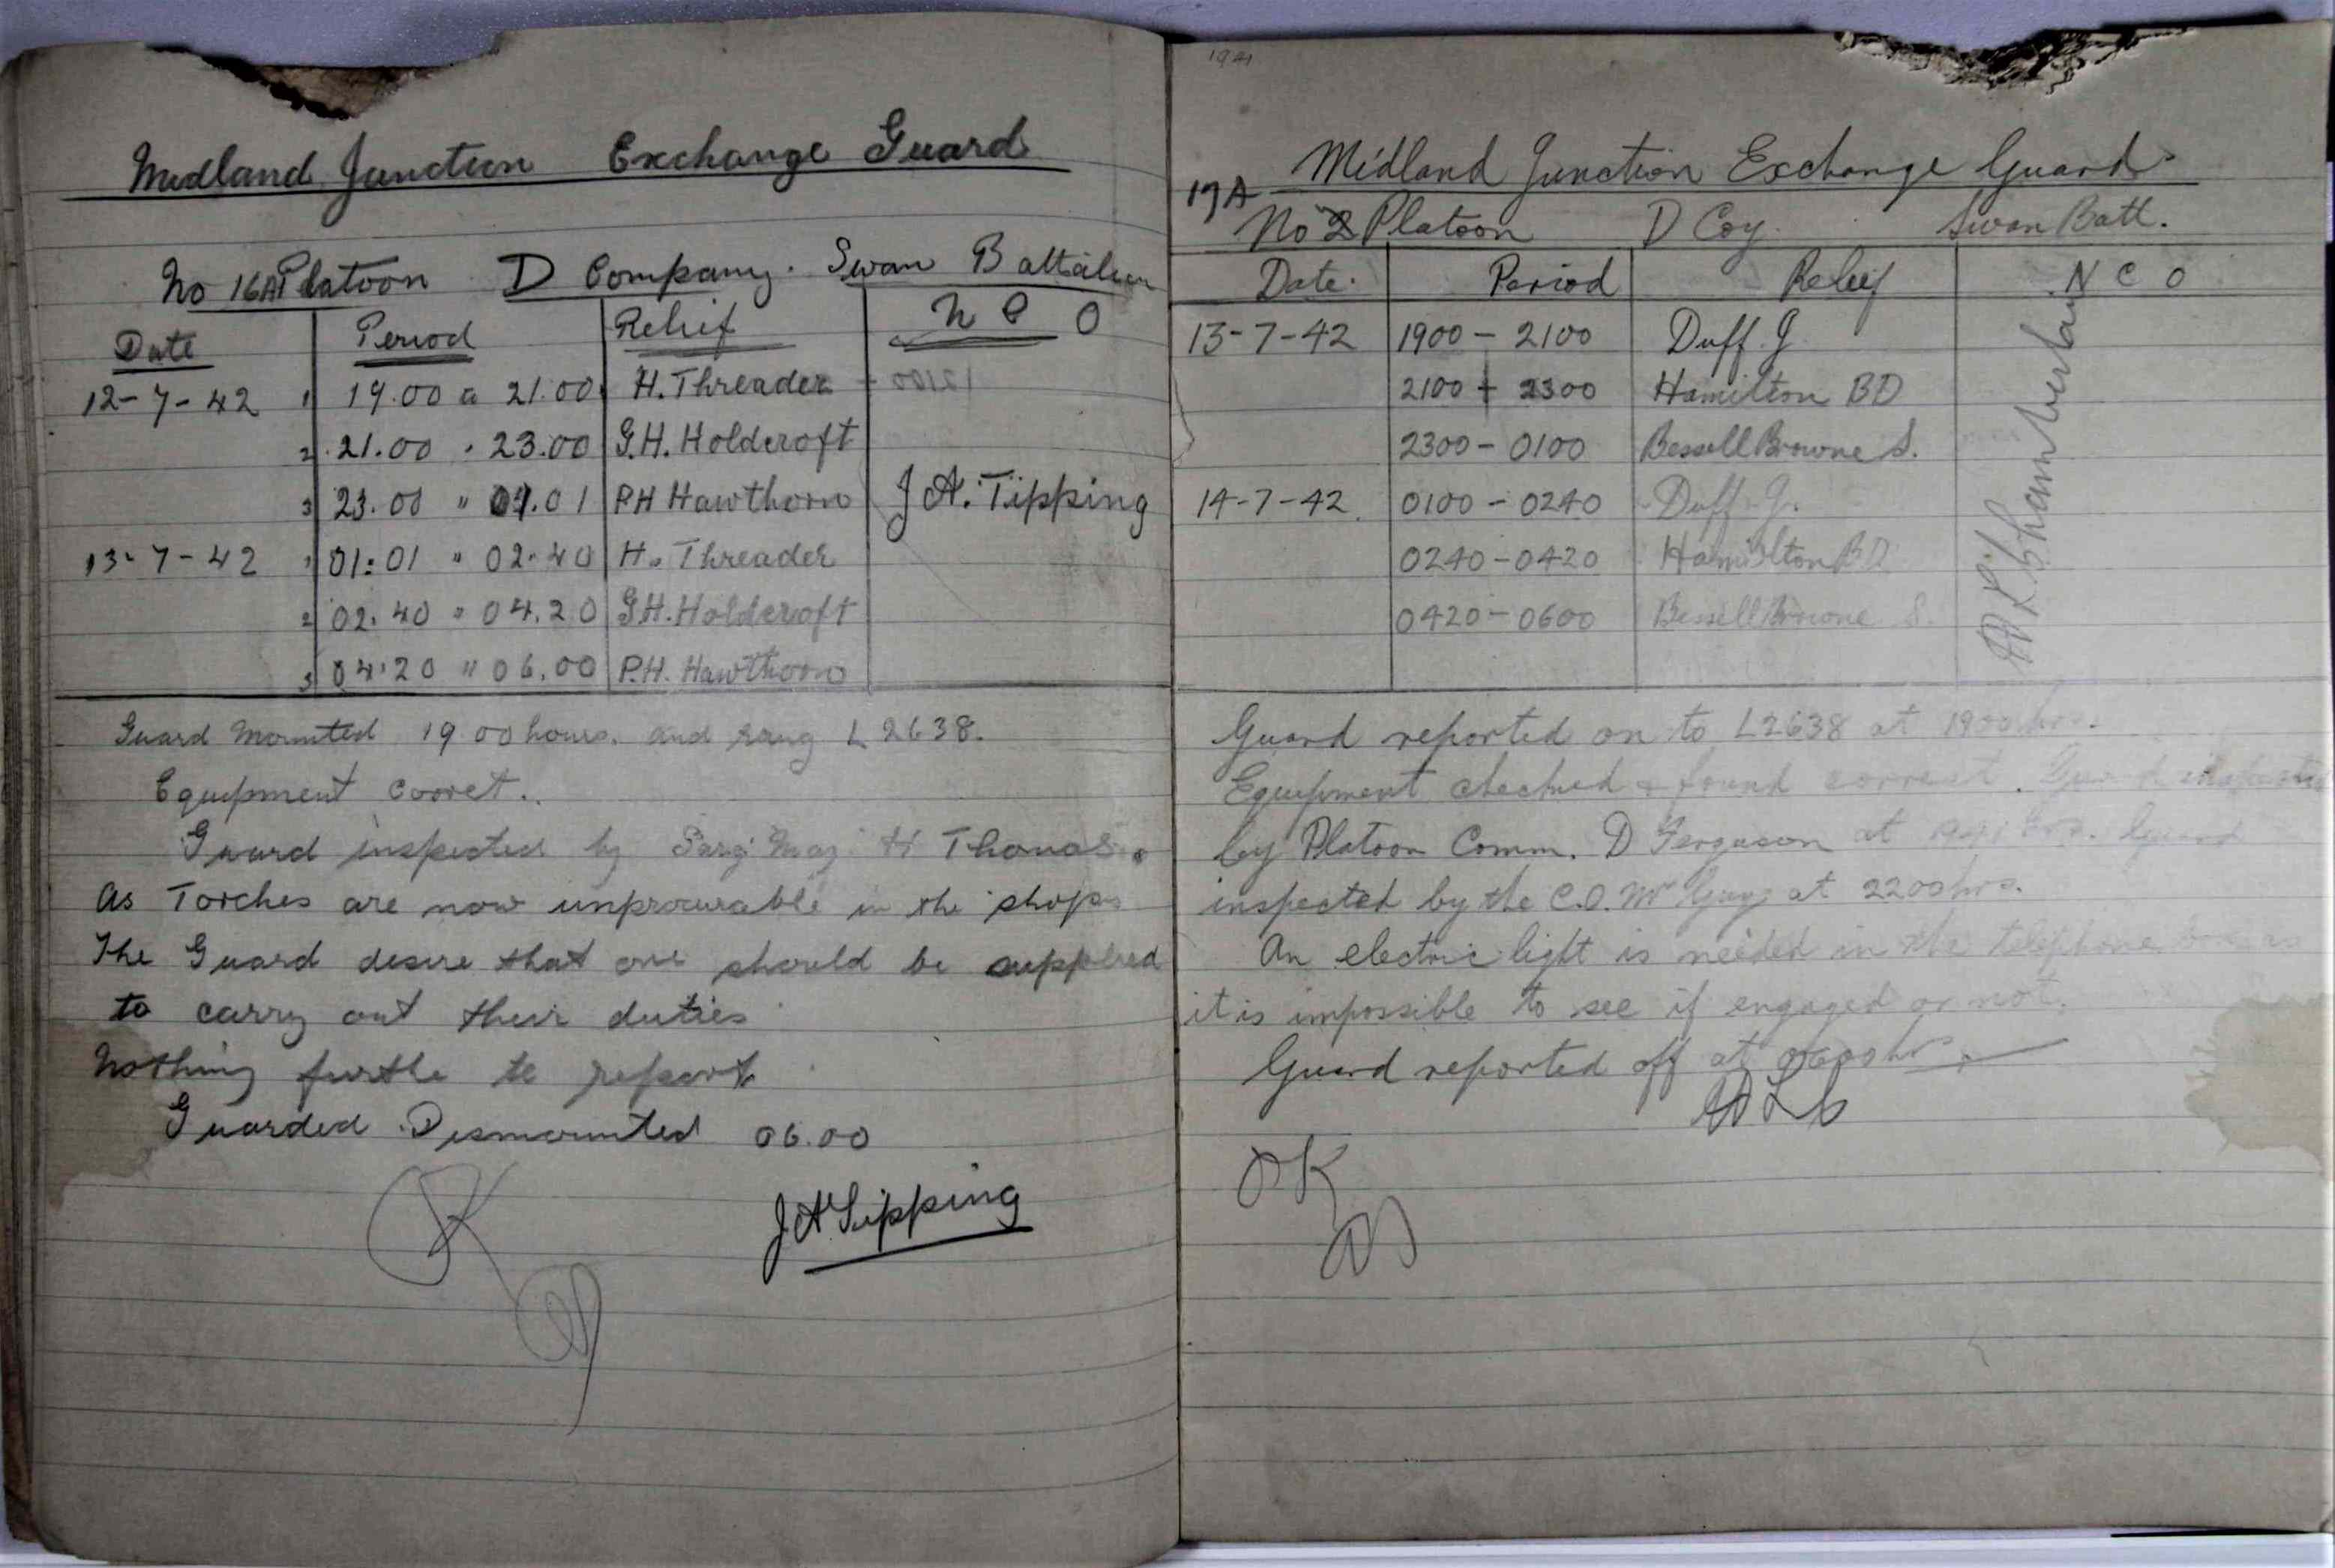 Midland Junction Exchange Guard
No 16A Platoon D Company. Swan Battalion
Date Period Relief N C O
12-7-42 1 19.00 a 21.00 H. Threader
2 21.00 " 23.00 G.H. Holdcroft
3 23.00 " 01.01 P.H Hawthorn J A. Tipping
13-7-42 1 01:01 " 02.40 H. Threader
2 02.40 " 04.20 G.H. Holdcroft
3 04.20 " 06.00 P.H. Hawthorn
Guard Mounted 19 00 hours. and rang L 2638.
Equipment Corret.
Guard inspected by Sarg Maj H Thomas.
As Torches are now unprocurable in the shops
The Guard desire that one should be supplied
to carry out their duties
Nothing furthe to report
Guarded Dismounted 06.00
OK
J A Tipping
17A
Midland Junction Exchange Guard
No 2 Platoon D Coy. Swan Batt.
Date. Period Relief N C O
13-7-42 1900 - 2100 Duff. G
2100 - 2300 Hamilton BD
2300 - 0100 Bessell Browne S.
14-7-42 0100 - 0240 Duff G.
0240 - 0420 Hamilton BD
0420 - 0600 Bessell Browne S.
Chamberlain
Guard reported on to L2638 at 1900 hrs.
Equipment checked & found correct. Guard inspected
by Platoon Comm. D Ferguson at hrs. Guard
inspected by the C.O. Mr at 2200 hrs.
An electric light is needed in the telephone
it is impossible to see if engaged or not.
Guard reported off at 0600 hrs.
OK